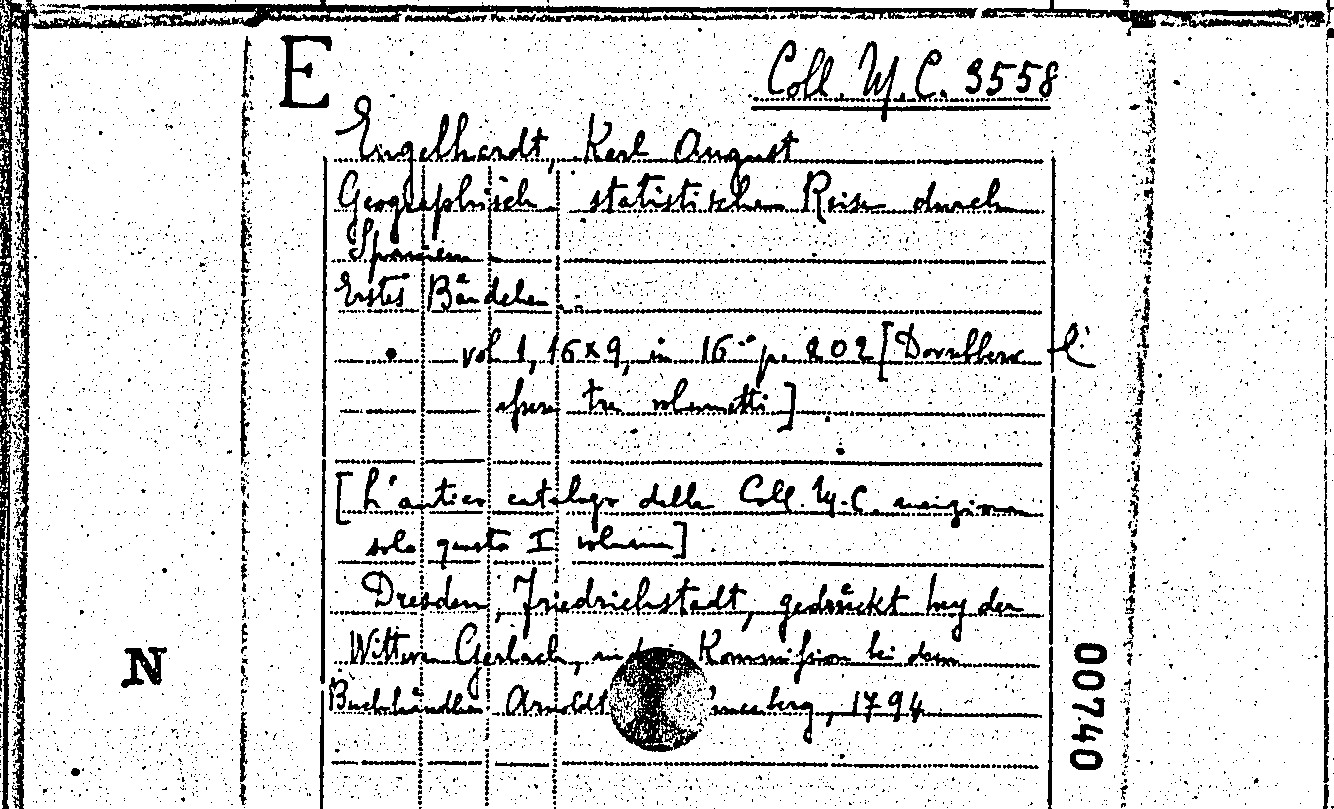 E
Coll. M.C. 3558
Engelhardt, Karl August
Geographisch - statistischen Reise durch
Spanien.
Erstes Bändchen.
vol 1, 16x9, in 16° p. 202 [Dovrebbero
tre volumetti]
[L'antico catalogo della Coll. M.C.
solo questo I volume]
Dresden, Friedrichstadt, gedrückt bey der
Wittwe Gerlach, Kommission bei dem
Buchhändler Arnoldt 1794
N
00740